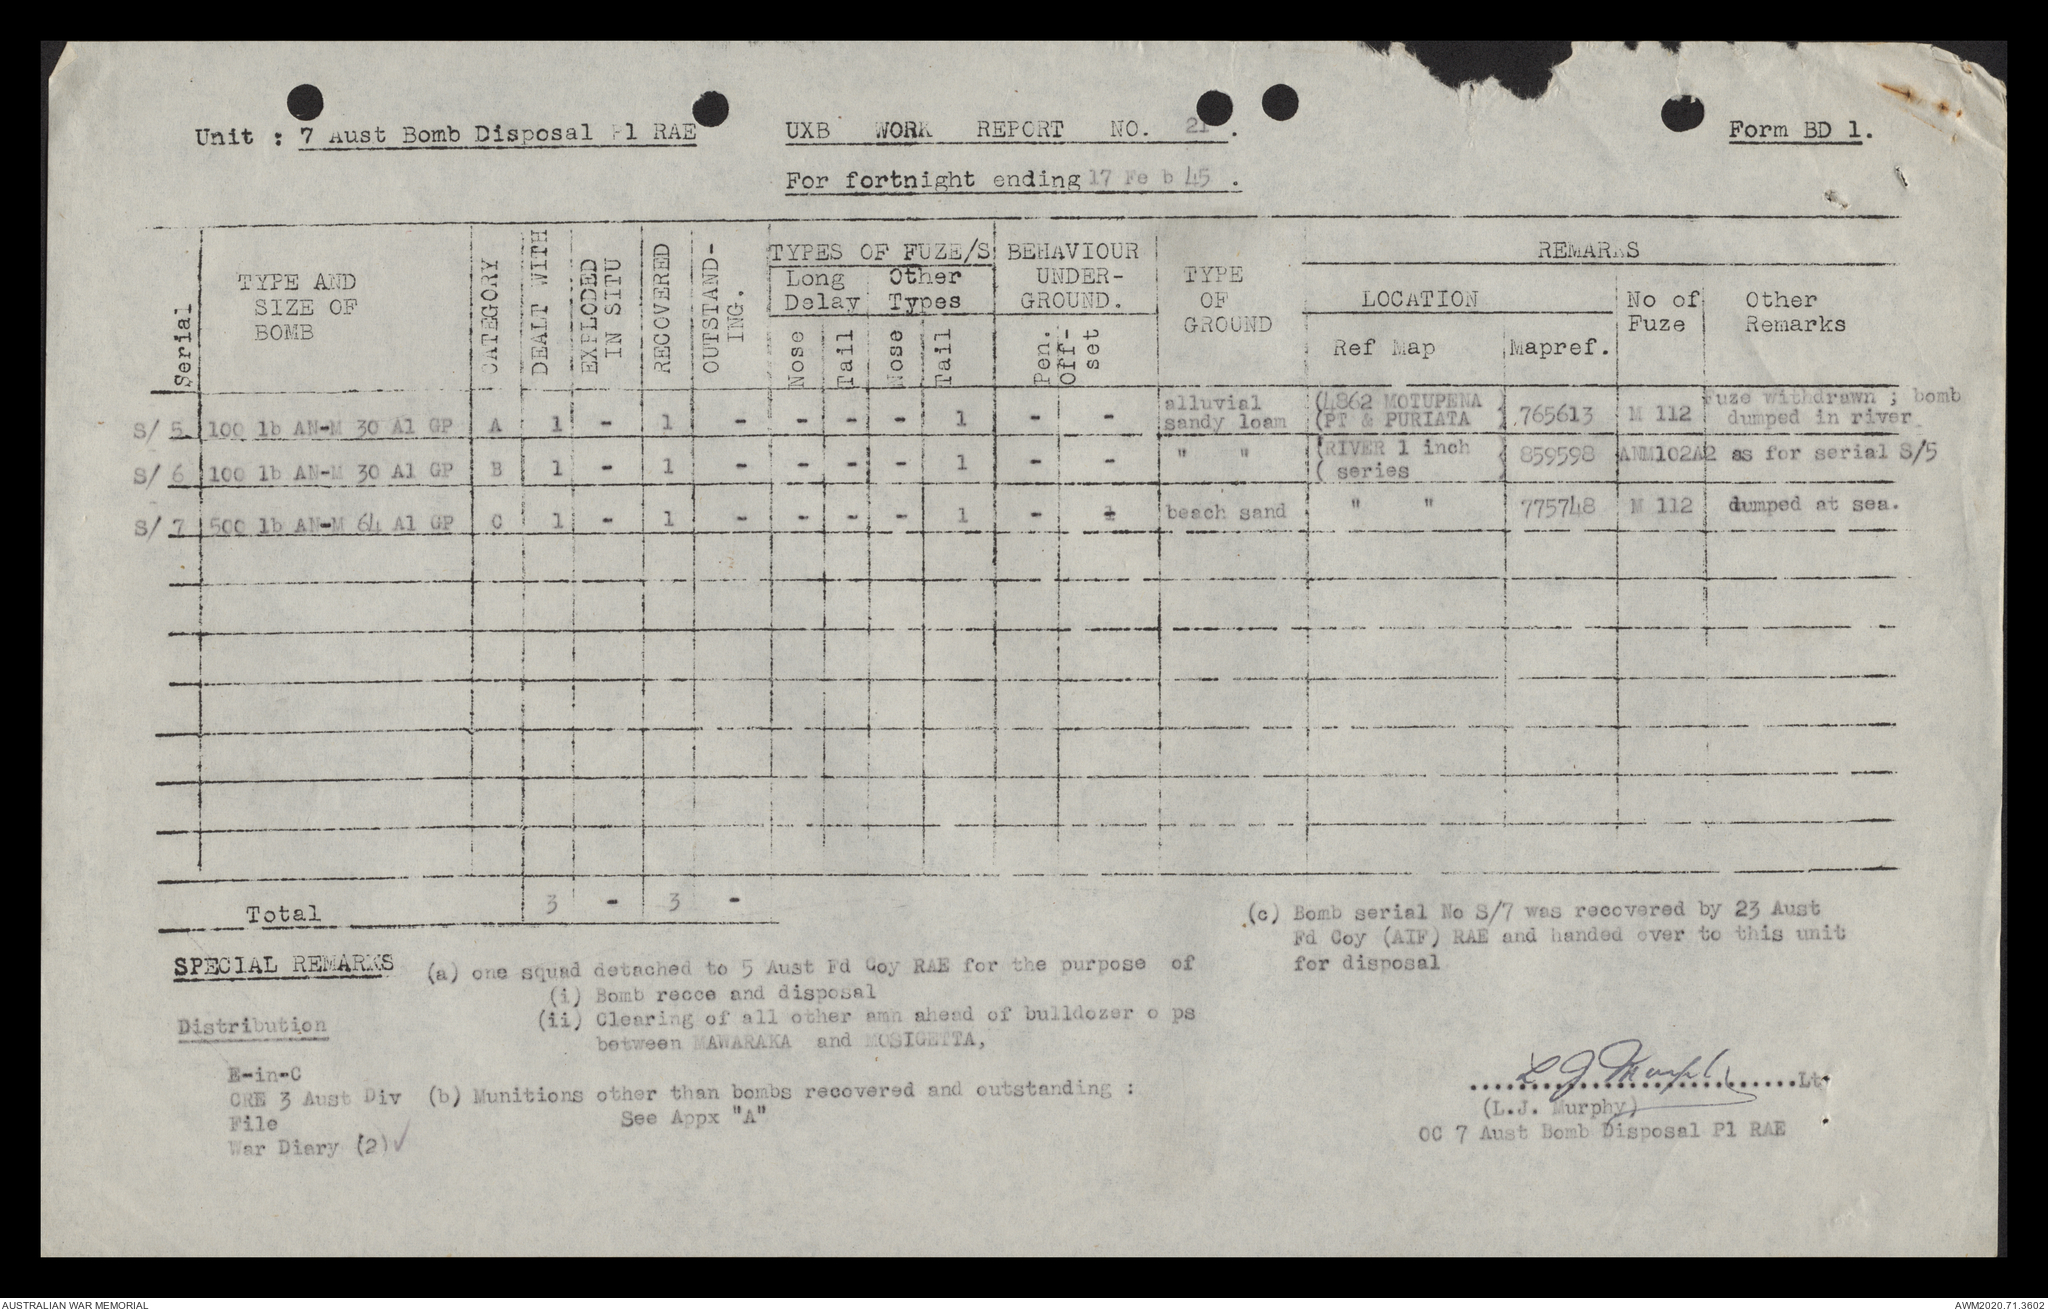 Unit : 7 Aust Bomb Disposal Pl RAE UXB WORK REPORT NO. 21 . Form BD 1.
For fortnight ending 17 Fe b 45 .
Serial
TYPE AND SIZE OF BOMB
CATEGORY
DEALT WITH
EXPLODED IN SITU
RECOVERED
OUTSTAND-ING.
TYPES OF FUZE/S
Long Delay
Other Types
Nose Tail Nose Tail
BEHAVIOUR UNDER-GROUND.
Pen. Off-set
TYPE OF GROUND
REMARKS
LOCATION
Ref Map Mapref.
No of Fuze
Other Remarks
S/ 5 100 lb AN-M 30 Al GP A 1 - 1 - - - - 1 - - alluvial sandy loam (4862 MOTUPENA ) (PT & PURIATA ) 765613 M 112 Fuze withdrawn ; bomb dumped in river
S/ 6 100 lb AN-M 30 Al GP B 1 - 1 - - - - 1 - - " " (RIVER 1 inch ) ( series ) 859598 ANM102A2 as for serial S/5
S/ 7 500 lb AN-M 64 Al GP C 1 - 1 - - - - 1 - - beach sand " " 775748 M 112 dumped at sea.
Total 3 - 3 -
SPECIAL REMARKS (a) one squad detached to 5 Aust Fd Coy RAE for the purpose of
(i) Bomb recce and disposal
(ii) Clearing of all other amn ahead of bulldozer o ps
between MAWARAKA and MOSIGETTA,
(b) Munitions other than bombs recovered and outstanding :
See Appx "A"
(c) Bomb serial No S/7 was recovered by 23 Aust
Fd Coy (AIF) RAE and handed over to this unit
for disposal
Distribution
E-in-C
CRE 3 Aust Div
File
War Diary (2) ✓
L J Murphy Lt
(L.J. Murphy)
OC 7 Aust Bomb Disposal Pl RAE
AUSTRALIAN WAR MEMORIAL AWM2020.71.3602